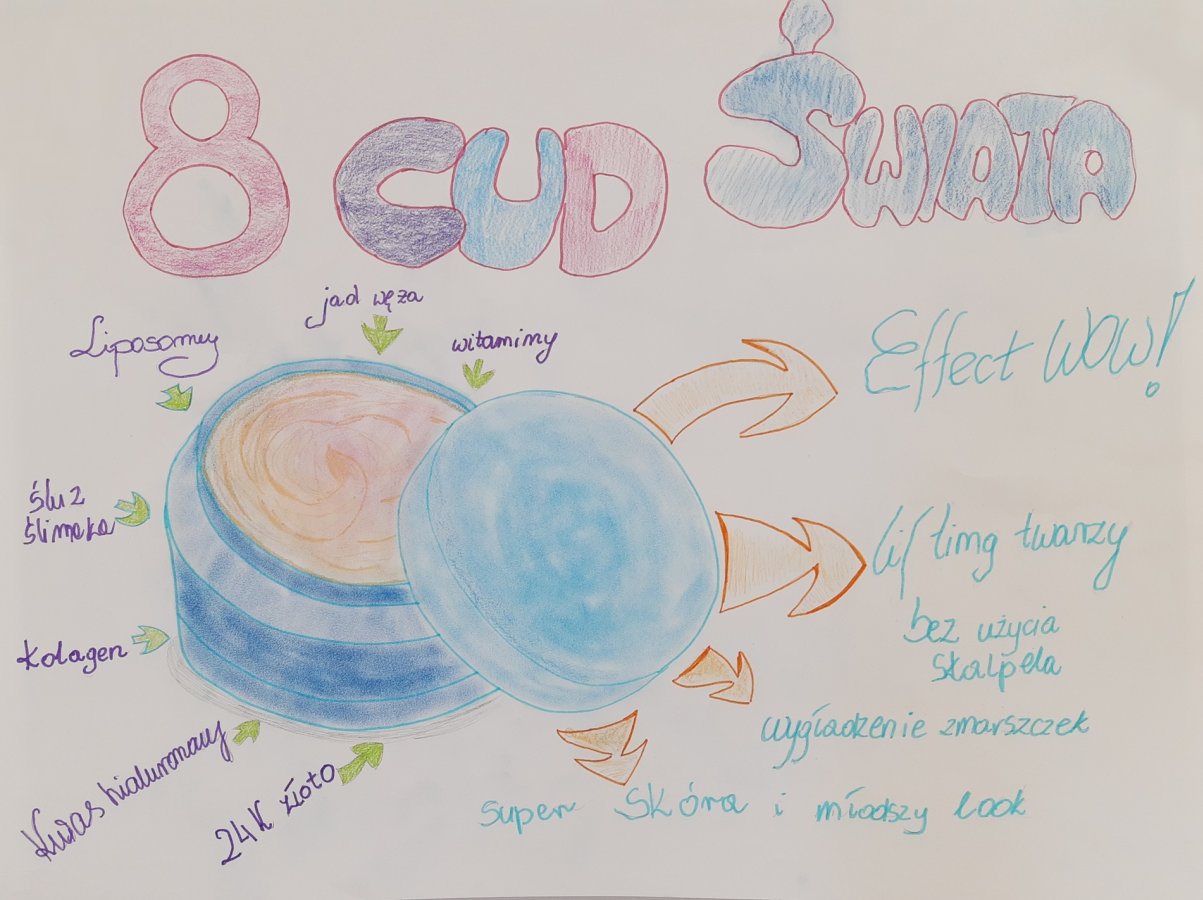 8 CUD ŚWIATA
jad węża
Liposomy
witaminy
Effect WOW!
śluz
ślimaka
lifting twarzy
bez użycia
skalpela
kolagen
wygładzenie zmarszczek
Kwas hialuronowy
24K złoto
super skóra i młodszy look